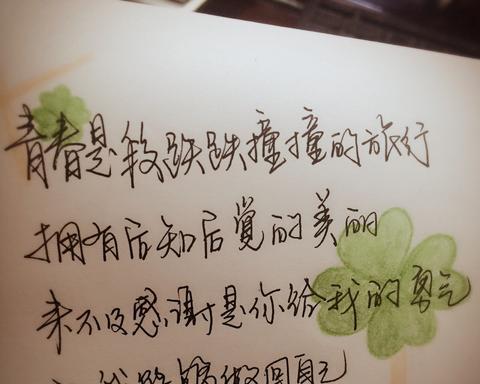 青春是段跌跌撞撞的旅行
拥有后知后觉的美丽
来不及感谢是你给我的勇气
能做回自己